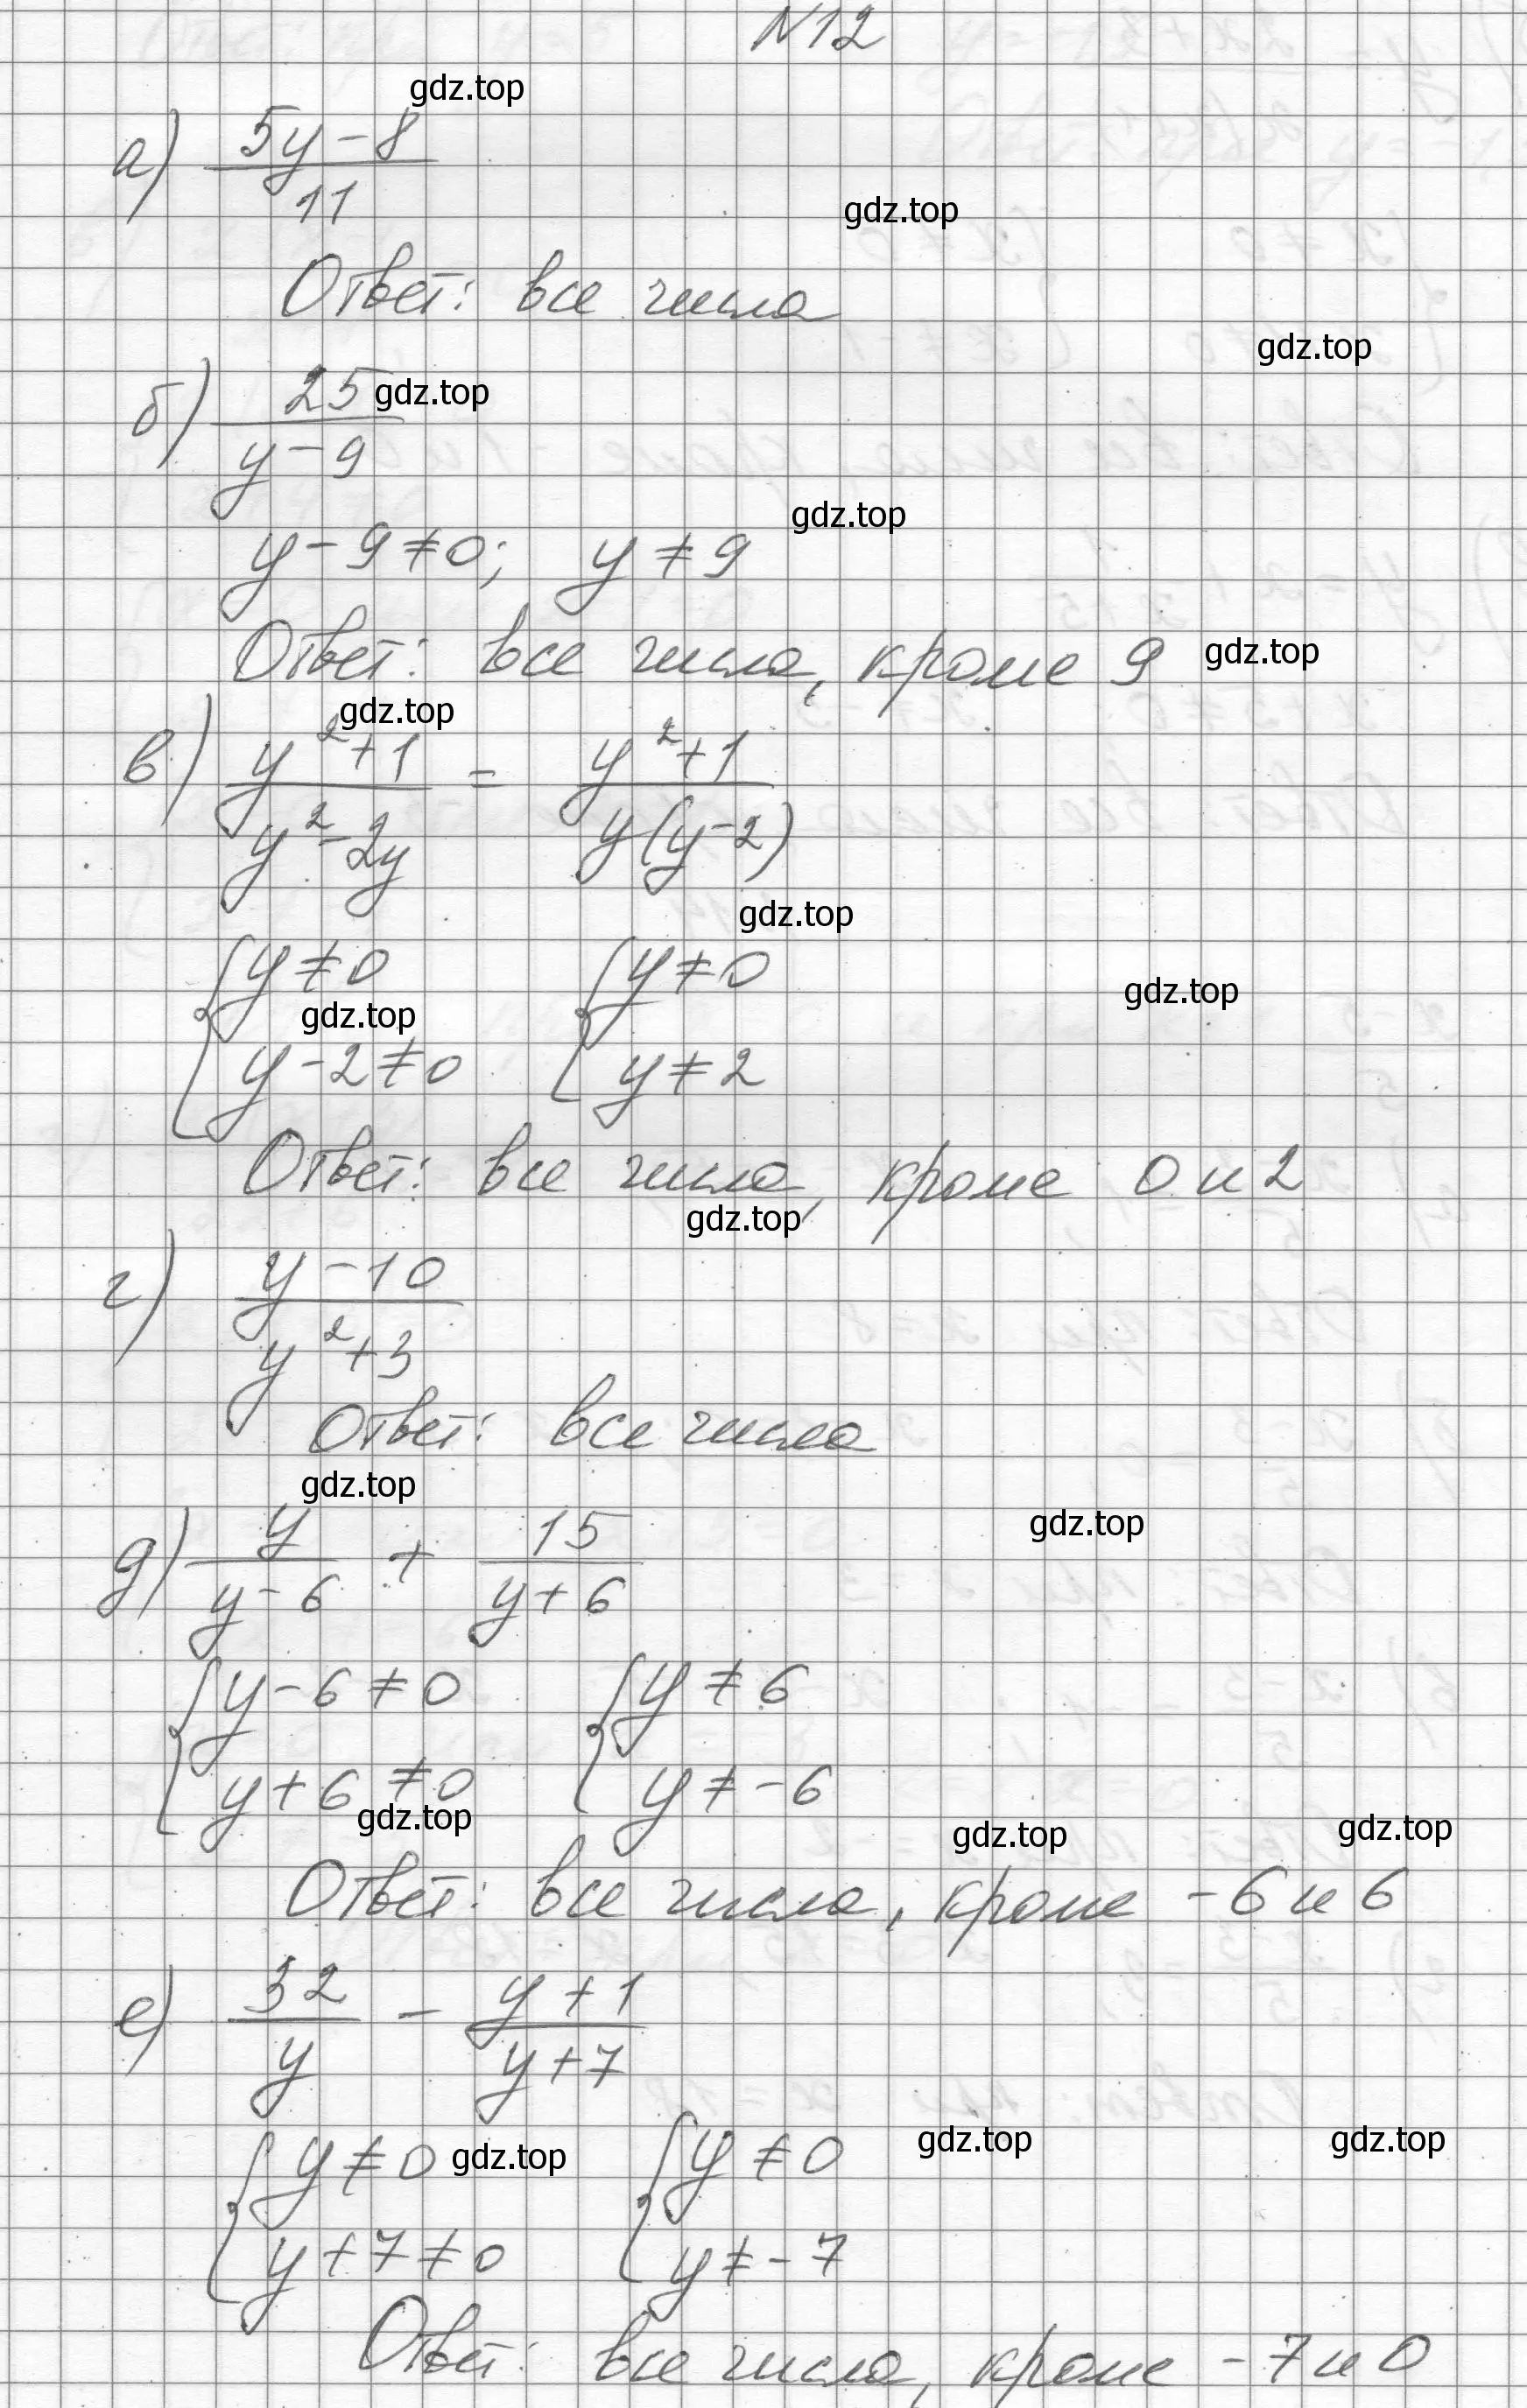 N12
gdz.top
а) (5y-8)/11
gdz.top
Ответ: все числа
gdz.top
б) 25/(y-9) gdz.top
gdz.top
y-9≠0; y≠9
Ответ: все числа, кроме 9 gdz.top
gdz.top
в) (y²+1)/(y²-2y) = (y²+1)/(y(y-2))
gdz.top
{y≠0 {y≠0
gdz.top gdz.top
y-2≠0 y≠2
Ответ: все числа, кроме 0 и 2
gdz.top
г) (y-10)/(y²+3)
Ответ: все числа
gdz.top gdz.top
д) y/(y-6) + 15/(y+6)
{y-6≠0 {y≠6
y+6≠0 y≠-6
gdz.top gdz.top gdz.top
Ответ: все числа, кроме -6 и 6
е) 32/y - (y+1)/(y+7)
{y≠0 gdz.top {y≠0 gdz.top gdz.top
y+7≠0 y≠-7
Ответ: все числа, кроме -7 и 0